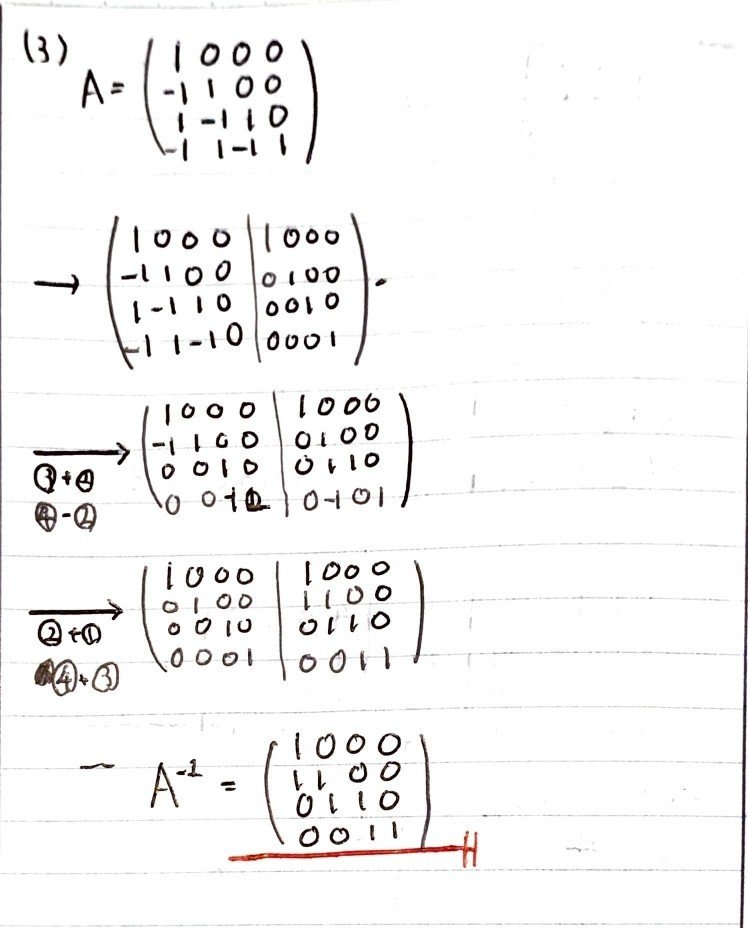 (3)
A = ( 1 0 0 0
-1 1 0 0
1 -1 1 0
-1 1 -1 1 )
→ ( 1 0 0 0 | 1 0 0 0
-1 1 0 0 | 0 1 0 0
1 -1 1 0 | 0 0 1 0
-1 1 -1 0 | 0 0 0 1 ) .
→ ( 1 0 0 0 | 1 0 0 0
-1 1 0 0 | 0 1 0 0
0 0 1 0 | 0 1 1 0
0 0 -1 | 0 -1 0 1 )
③+②
④-②
→ ( 1 0 0 0 | 1 0 0 0
0 1 0 0 | 1 1 0 0
0 0 1 0 | 0 1 1 0
0 0 0 1 | 0 0 1 1 )
②+①
④+③
A⁻¹ = ( 1 0 0 0
1 1 0 0
0 1 1 0
0 0 1 1 )